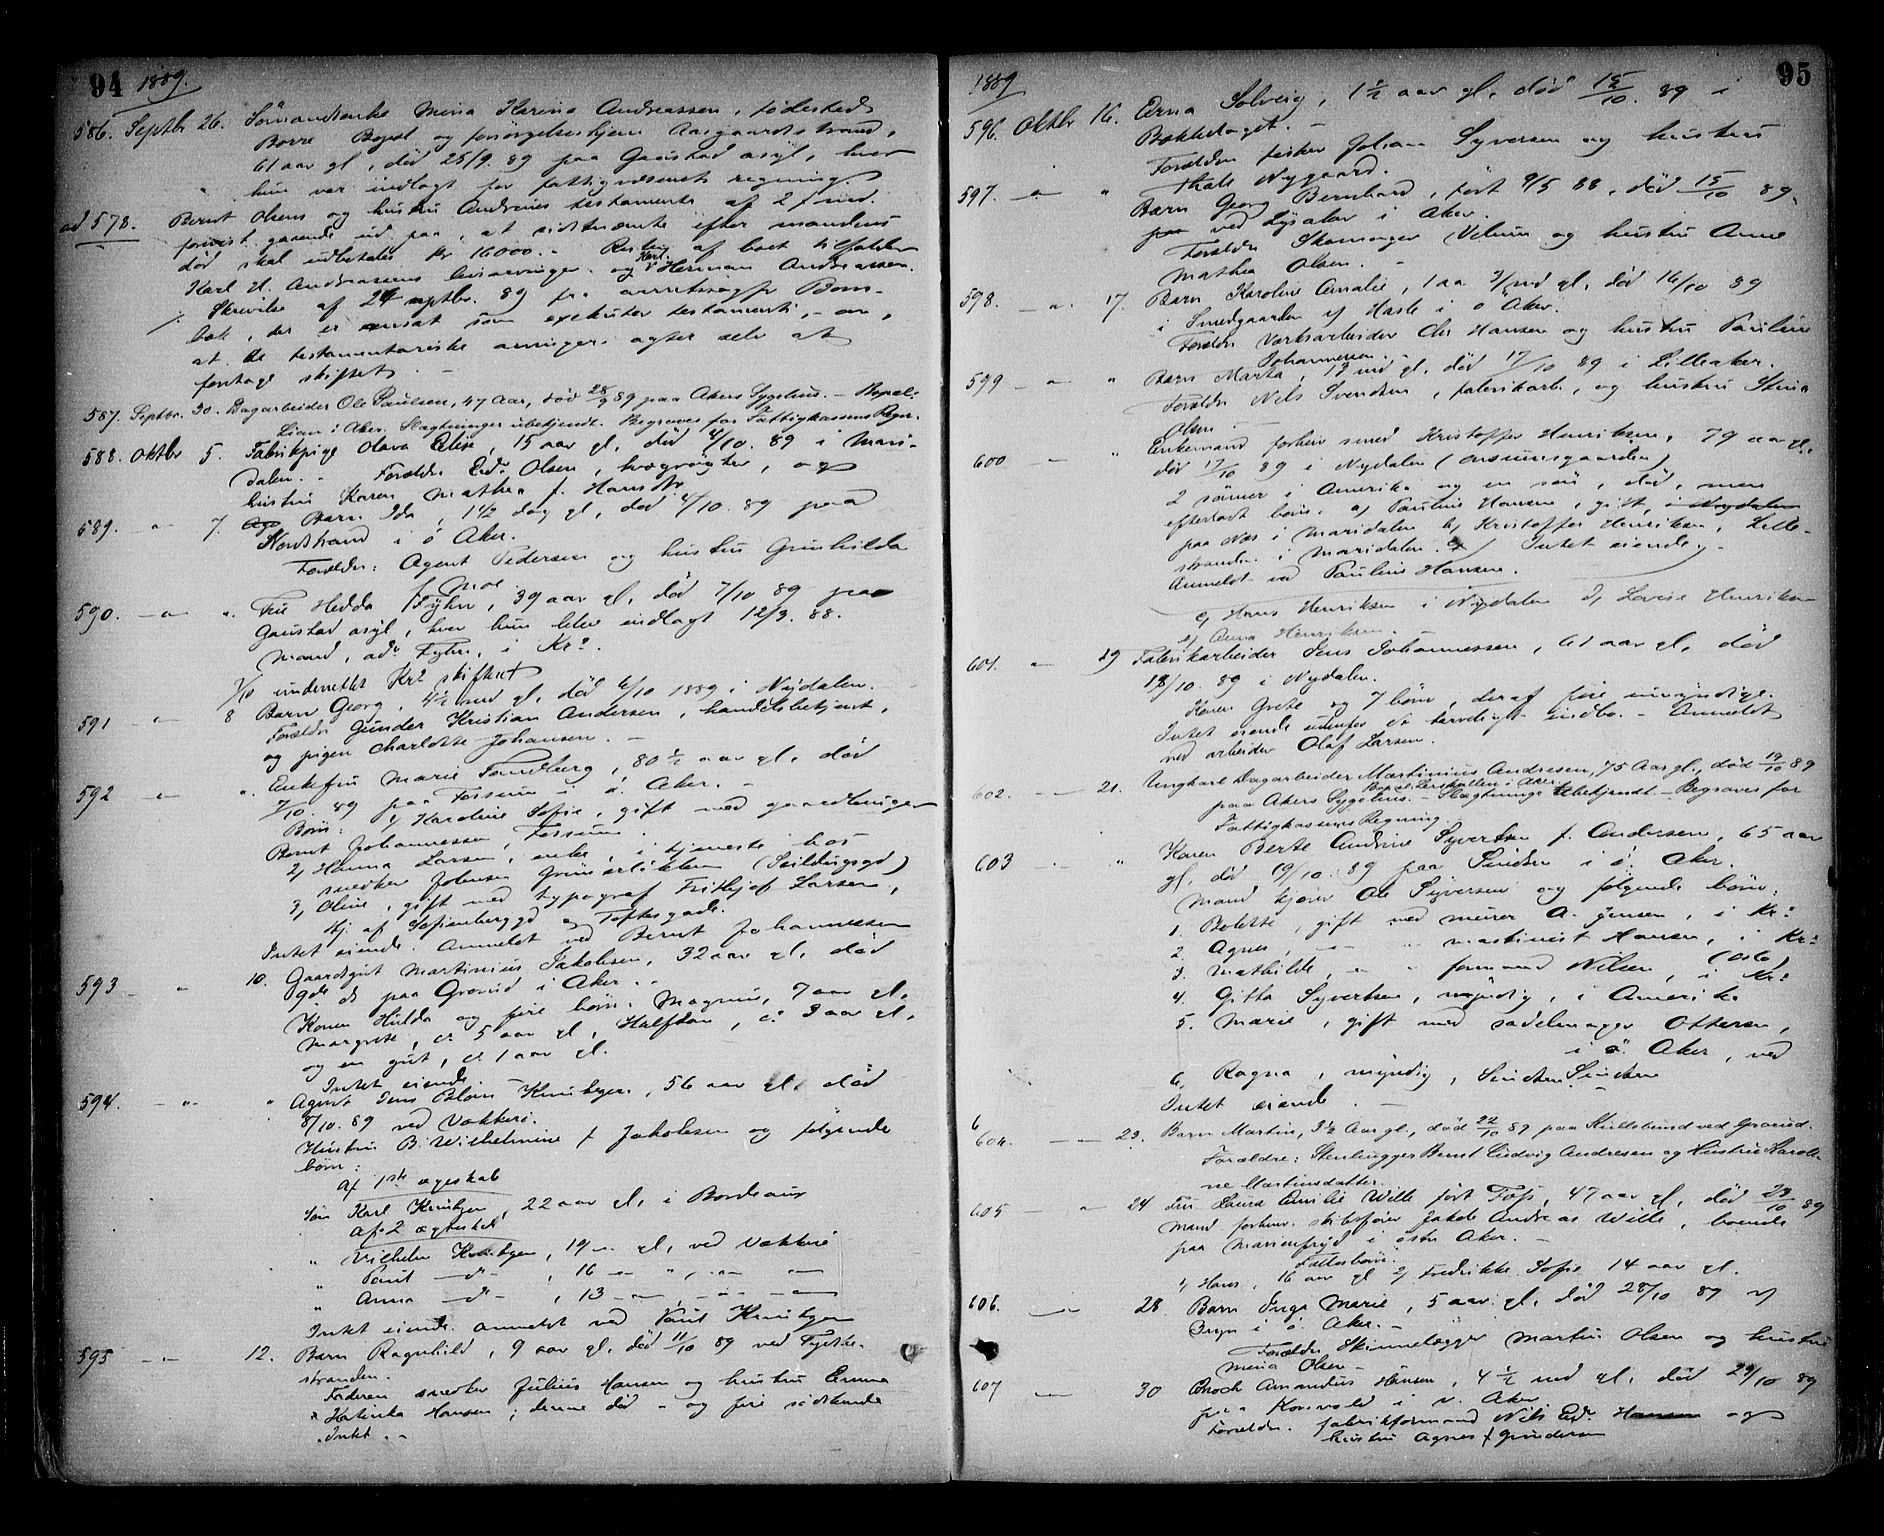 94 1889.
586. Septbr 26. Sömandsenke Mina Karine Andreassen, födested
Borre Bopæl og forsörgelseshjem Aasgaardsstrand,
61 aar gl, död 25/9. 89 paa Gaustad asyl, hvor
hun var indlagt for fattigvæsenets regning.
ad 578. Bernt Olsens og hustru Andrines testamente af
forevist gaaende ud paa, at sidstnævnte efter mandens
död skal udbetales Kr 16000.- Resten af boet tilfalder
Karl H. Andreassens livsarvinger og Karl Herman Andreassen.
Skrivelse af 24 septbr. 89 fra overretssagfr Bom-
bak, der er ansat som exekutor testamenti, om,
at de testamentariske arvinger agter selv at
foretage skiftet. -
587. Septbr. 30. Dagarbeider Ole Paulsen, 47 Aar, död 28/9 89 paa Akers Sygehus. - Bopæl:
Lian i Aker. Slægtninger ubekjendt. Begraves for Fattigkassens Regn.
588. Oktbr 5. Fabrikpige Olava Elise, 15 aar gl, död 4/10. 89 i Mari-
dalen. - Forældre Edv. Olsen, kvægrögter, og
hustru Karen Mathea f. Hansdtr
589. " 7. Barn Ida, 1 1/2 dag gl, död 4/10. 89 paa
Nordstrand i ö Aker.
Forældre: Agent Pedersen og hustru Gunhilda
f. Moe.
590. - " - ". Fru Hedda Fyhn, 39 aar gl, död 7/10 89 paa
Gaustad asyl, hvor hun blev indlagt 12/3. 88.
Mand, adv. Fyhn, i Kra.
underrettet Kra skifteret
591 " 8 Barn Georg, 4 1/2 md gl, död 6/10 1889 i Nydalen.
Forældre Gunder Kristian Andersen, handelsbetjent,
og pigen Charlotte Johansen. -
592 - " - ". Enkefru Marie Sandberg, 80 1/2 aar gl, död
7/10. 89 paa Fossum i ö. Aker. -
Börn: 1/ Karoline Sofie, gift med gaardbruger
Bernt Johannessen, Fossum.
2/ Hanna Larsen, enke, i tjeneste hos
snedker Johnsen Grünerlökken (Seildugsgd)
3, Oline, gift med typograf Frithjof Larsen,
Hj. af Sofienberggd og Toftesgade.
Intet eiende. Anmeldt ved Bernt Johannessen
593 - " 10. Gaardsgut Martinius Jakobsen, 32 aar gl, död
9de ds paa Grorud i Aker. -
Konen Hulda og fire börn: Magnus, 7 aar gl,
Margrete, ca. 5 aar gl, Halfdan, ca. 3 aar gl,
og en gut, ca. 1 aar gl.
Intet eiende. -
594. - " - " Agent Jens Blom Knutzen, 56 aar gl, död
8/10. 89 ved Vækkerö.
Hustru B. Wilhelmine f Jakobsen og fölgende
börn:
Af 1ste ægteskab
Sön Karl Knutzen, 22 aar gl, i Bordeaux
Af 2 ægteskab
" Vilhelm Knutzen, 19 - gl, ved Vækkerö
" Paul - d° - , 16 - " - " -
" Anna - d° - , 13 - " - " -
Intet eiende. Anmeldt ved Paul Knutzen
595 - " - 12. Barn Ragnhild, 9 aar gl, död 11/10 89 ved Lysker-
stranden.
Faderen snedker Julius Hansen og hustru Emma
Katinka Hansen; denne död - og fire södskende
Intet. -
1889 95
596. Oktbr 16. Erna Solveig, 1 1/2 aar gl, död 15/10. 89 i
Bækkelaget. -
Forældre fisker Johan Syversen og hustru
Thale Nygaard.
597. - " - " Barn Georg Bernhard, födt 9/5 88, död 15/10 89.
paa ved Lysaker i Aker.
Forældre Skomager Velum og hustru Anne
Mathea Olsen. -
598. - " . 17. Barn Karoline Amalie, 1 aar 7/md gl, död 16/10 89
i Smedgaarden af Hasle i ö Aker.
Forældre Værksarbeider Chr Hansen og hustru Pauline
Johannesen. -
599 - " - " Barn Marta, 17 md gl, död 17/10 89 i Lilleaker.
Forældre Nils Svendsen, fabrikarb., og hustru Stina
Olsen. -
600 - " Enkemand forhen smed Kristoffer Henriksen, 79 aar gl,
död 17/10 89 i Nydalen
2 sönner i Amerika og en sön, död, men
efterladt börn. a) Pauline Hansen, gift, i Nydalen
paa Næs i Maridalen b) Kristoffer Henriksen, Hille-
stranden i Maridalen. Intet eiende. -
Anmeldt ved Pauline Hansen.
c, Hans Henriksen i Nydalen d, Lovise Henriksen
e) Anna Henriksen.
601. " 19 Fabrikarbeider Jens Johannessen, 61 aar gl, död
18/10. 89 i Nydalen.
Konen Grete og 7 börn, deraf fire umyndige.
Intet eiende udenfor et tarveligt indbo. - Anmeldt
ved arbeider Olaf Larsen.
602. - - 21. Ungkarl Dagarbeider Martinius Andresen, 75 Aar gl., död 19/10 89
paa Akers Sygehus. - Slægtninge ubekjendt. - Begraves for
Fattigkassens Regning.
603 - " Karen Berte Andrine Syvertsen f. Andersen, 65 aar
gl. död 19/10. 89 paa Sinsen i ö. Aker.
Mand kjörer Ole Syversen og fölgende börn:
1. Bolette, gift med murer A. Jensen, i Kra.
2. Agnes, - " - " maskinist Hansen, i Kra
3. Mathilde, - " - " formand Nilsen, i Kra (Oslo)
4. Gitta Syvertsen, myndig, i Amerika
5. Marie, gift med sadelmager Ottersen,
i ö. Aker, ved
6, Ragna, myndig, Sinsen Sinsen
Intet eiende. -
604. - - 23. Barn Martin, 3 1/2 Aar gl., död 22/10 89 paa Kullebund ved Grorud.
Forældre: Stenhugger Bernt Ludvig Andresen og Hustru Karoli-
ne Martinsdatter.
605 - " 24 Fru Laura Amalie Wille födt Foss, 47 aar gl, död 23/10 89
Mand forhenv. skibsförer Jakob Andreas Wille, boende
paa Marienfryd i östre Aker. -
Fællesbörn:
1/ Hans, 16 aar gl 2/ Fredrikke Sofie 14 aar gl.
606. - " 28. Barn Inga Marie, 5 aar gl, död 25/10 89 af
Bryn i ö. Aker. -
Forældre Skinnelægger Martin Olsen og hustru
Mina Olsen -
607 - 30 Enoch Amandus Hansen, 4 1/2 md gl, död 29/10 89
paa Korsvold i v. Aker
Forældre. fabrikformand Nils Edv. Hansen og
hustru Agnes f Gundersen